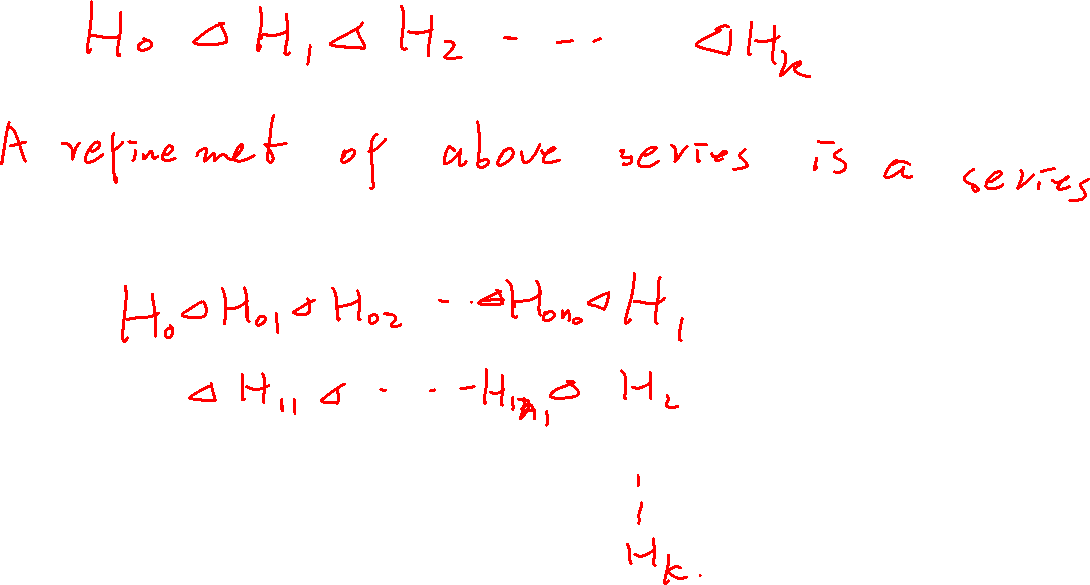 H₀ ⊲ H₁ ⊲ H₂ - - - ⊲ Hₖ
A refinemet of above series is a series
H₀ ⊲ H₀₁ ⊲ H₀₂ - - - ⊲ H₀ₙ₀ ⊲ H₁
⊲ H₁₁ ⊲ - - - H₁ₙ₁ ⊲ H₂
⋮
Hₖ.